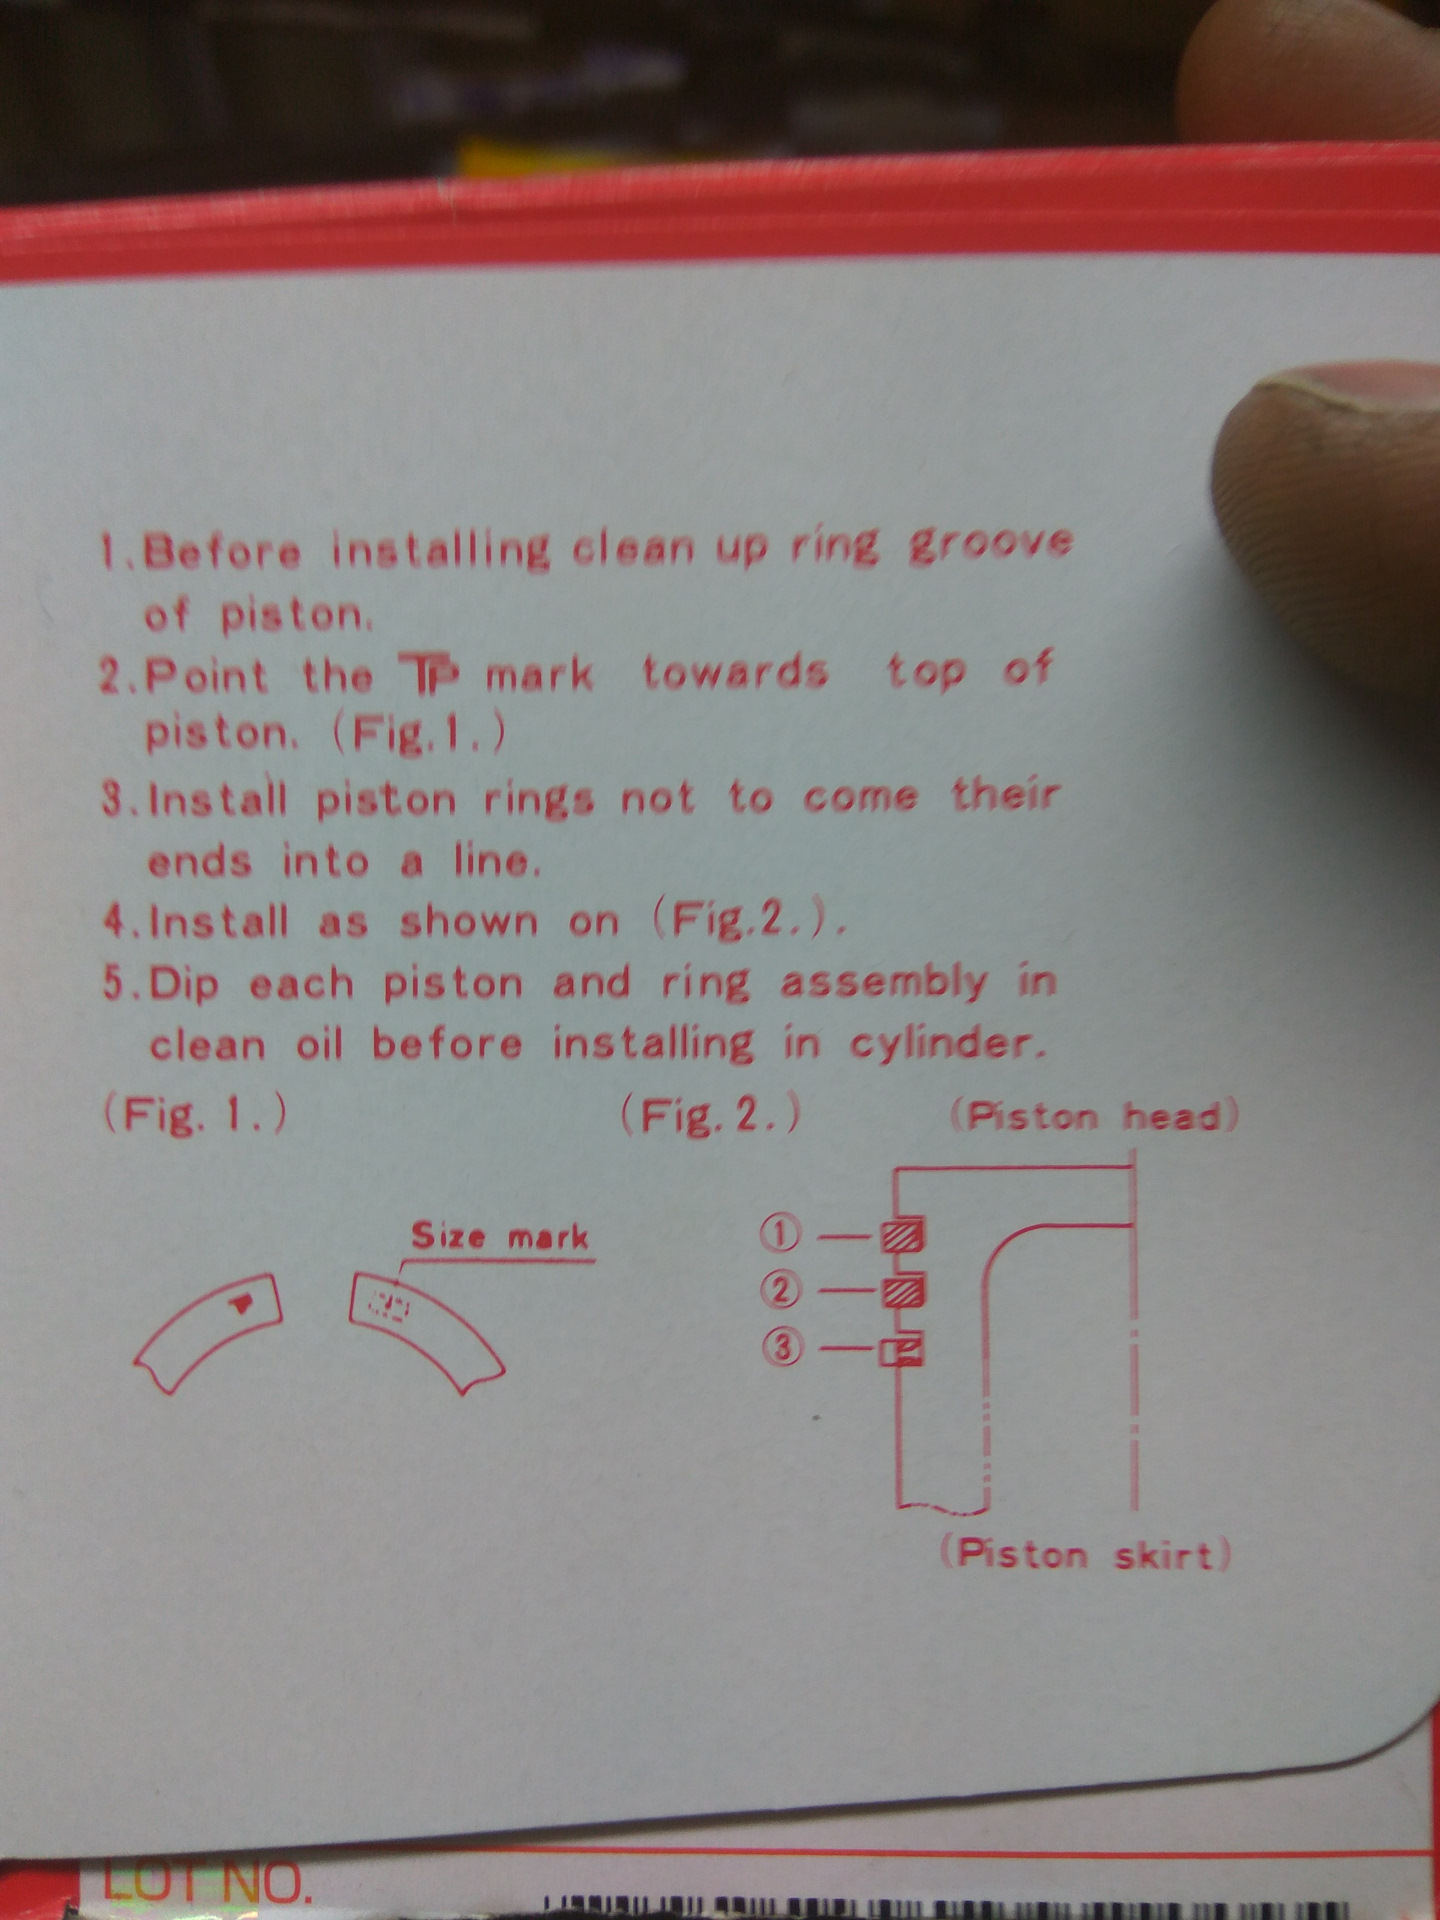 1.Before installing clean up ring groove
of piston.
2.Point the TP mark towards top of
piston. (Fig.1.)
3.Install piston rings not to come their
ends into a line.
4.Install as shown on (Fig.2.).
5.Dip each piston and ring assembly in
clean oil before installing in cylinder.
(Fig. 1.) (Fig. 2.) (Piston head)
Size mark
①
②
③
(Piston skirt)
LOT NO.